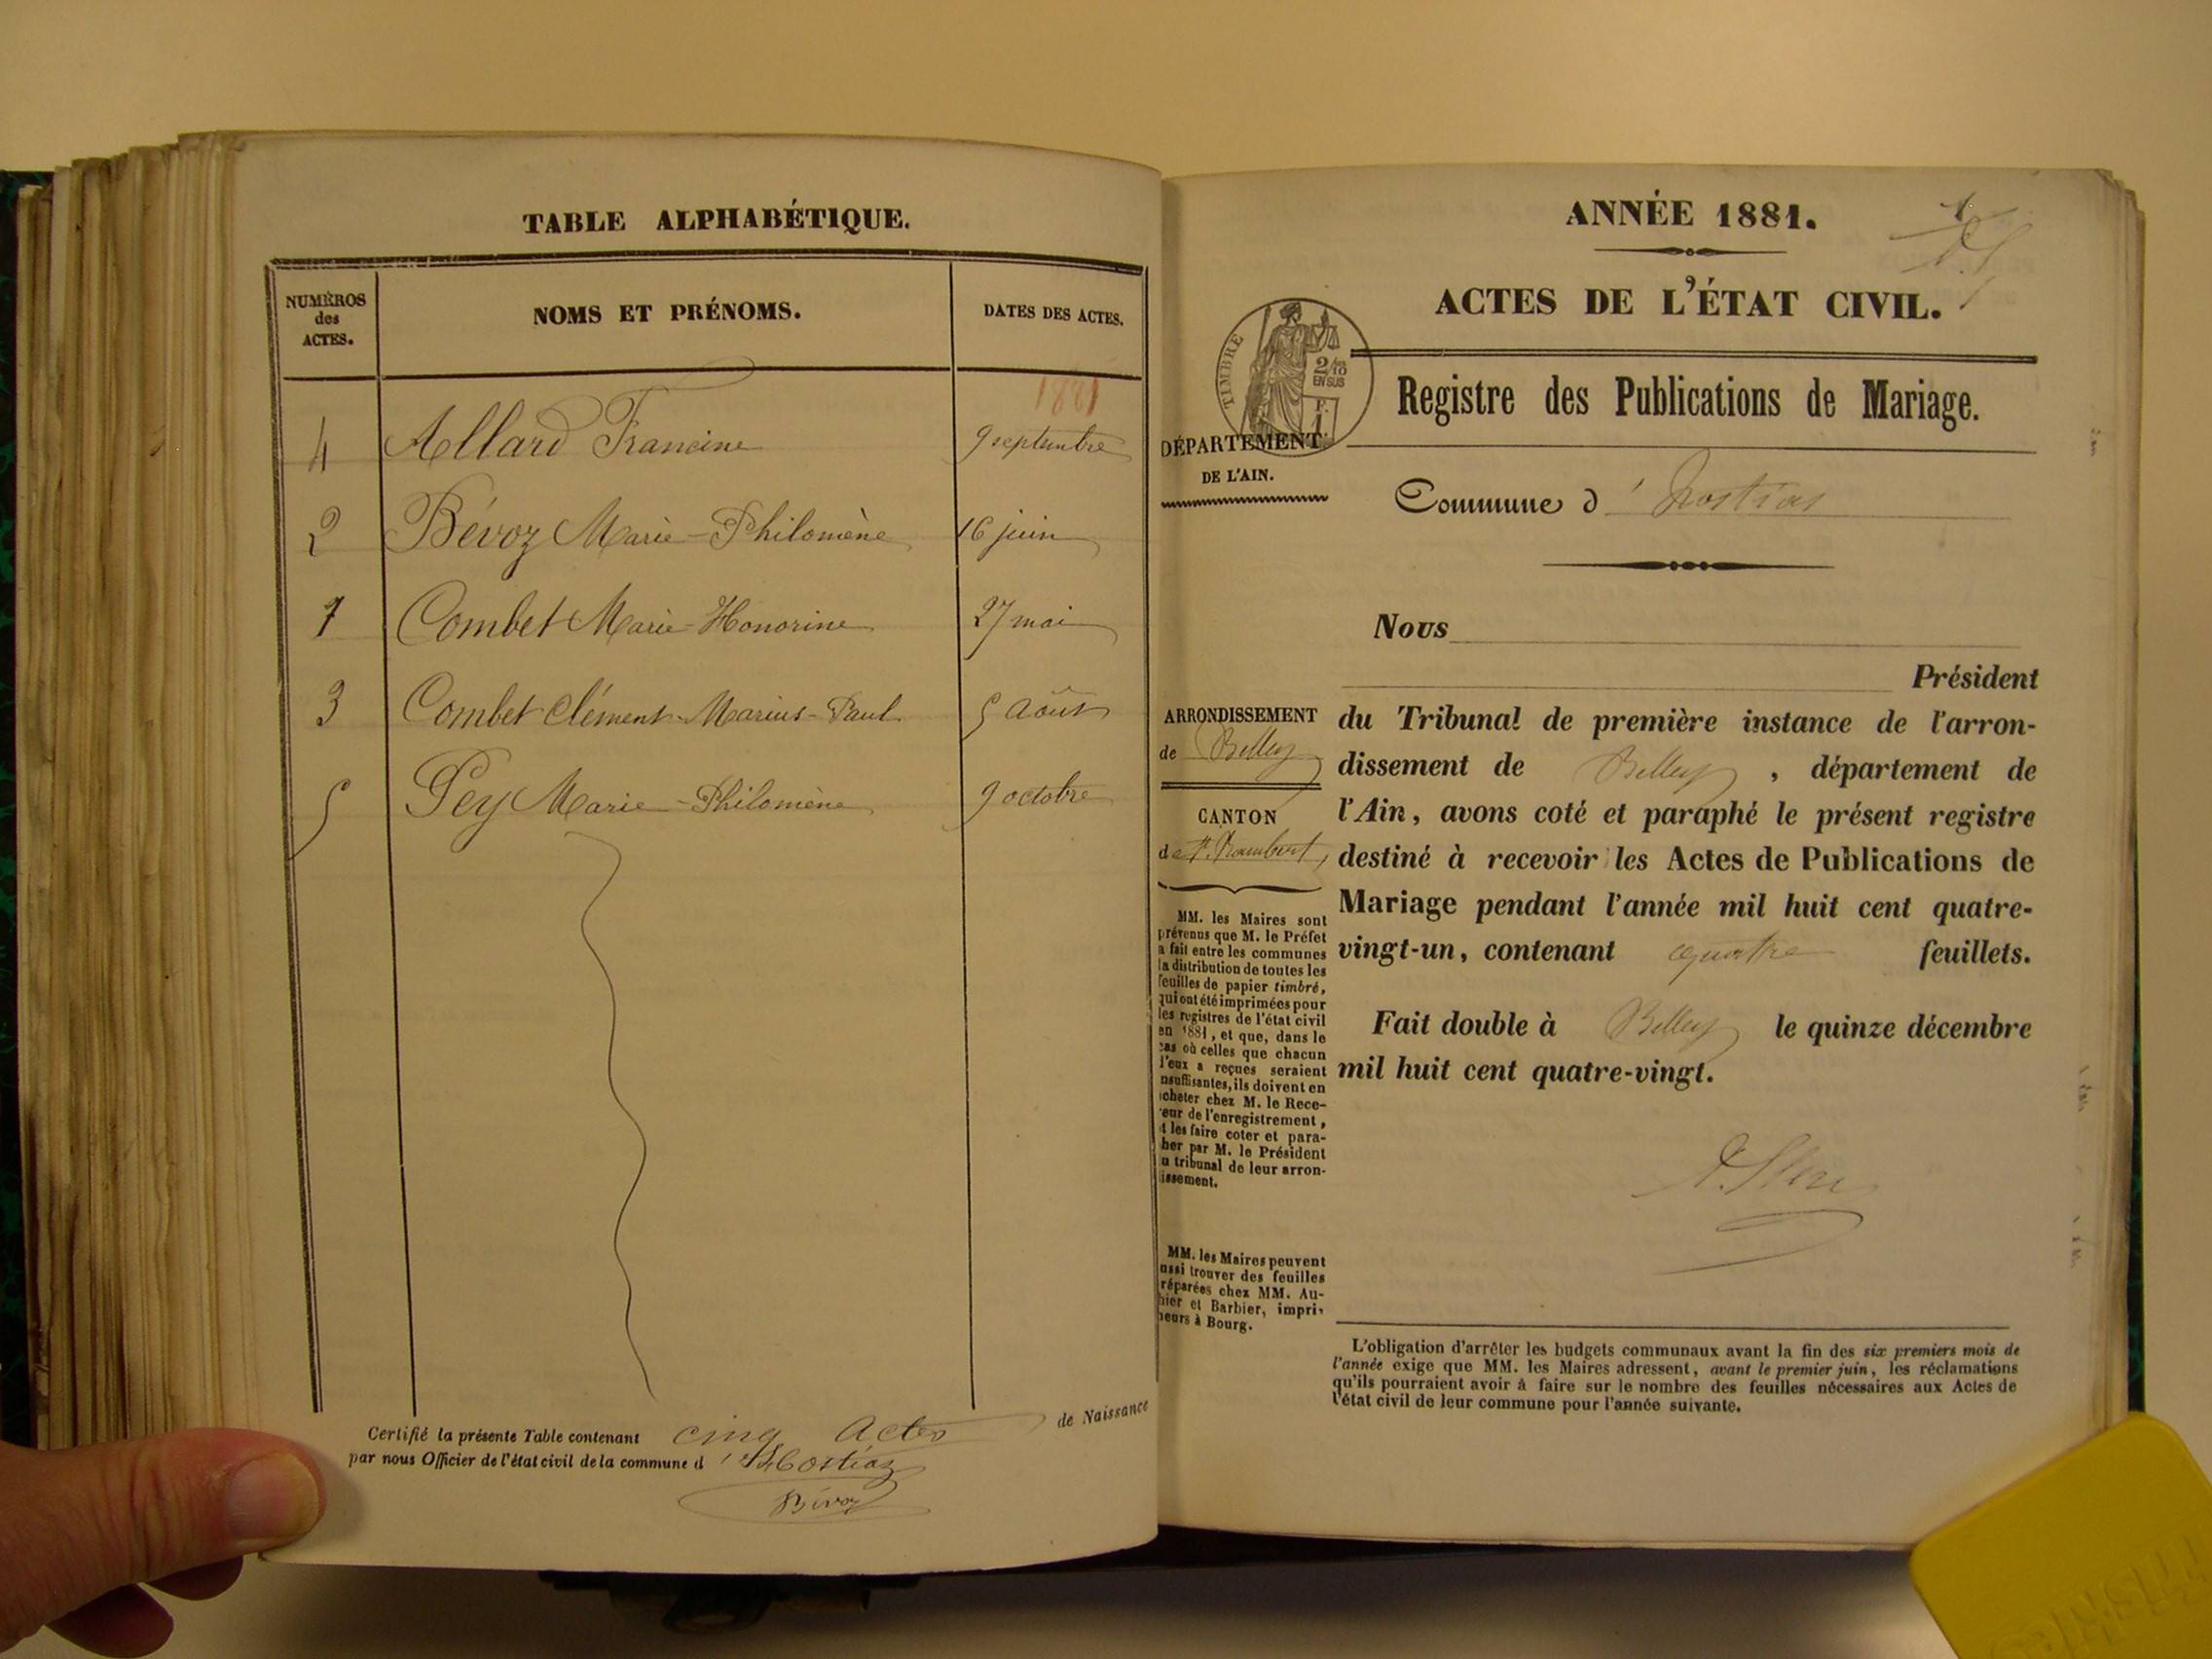 TABLE ALPHABÉTIQUE.
NUMÉROS des ACTES.
NOMS ET PRÉNOMS.
DATES DES ACTES.
1881
4 Allard Francine 9 septembre
2 Bévoz Marie-Philomène 16 juin
1 Combet Marie-Honorine 27 mai
3 Combet Clément-Marius-Paul 5 Août
5 Pey Marie-Philomène 9 octobre
Certifié la présente Table contenant cinq Actes de Naissance
par nous Officier de l'état civil de la commune d'Hostiaz
Bévoz
ANNÉE 1881.
ACTES DE L'ÉTAT CIVIL.
TIMBRE
2/10
EN SUS
F.
1
Registre des Publications de Mariage.
DÉPARTEMENT
DE L'AIN.
Commune d'Hostias
Nous
Président
du Tribunal de première instance de l'arron-
dissement de Belley, département de
l'Ain, avons coté et paraphé le présent registre
destiné à recevoir les Actes de Publications de
Mariage pendant l'année mil huit cent quatre-
vingt-un, contenant quatre feuillets.
Fait double à Belley le quinze décembre
mil huit cent quatre-vingt.
ARRONDISSEMENT
de Belley
CANTON
de St. Rambert
MM. les Maires sont
prévenus que M. le Préfet
a fait entre les communes
la distribution de toutes les
feuilles de papier timbré,
qui ont été imprimées pour
les registres de l'état civil
en 1881, et que, dans le
cas où celles que chacun
d'eux a reçues seraient
nsuffisantes, ils doivent en
cheter chez M. le Rece-
eur de l'enregistrement,
t les faire coter et para-
her par M. le Président
u tribunal de leur arron-
issement.
MM. les Maires peuvent
ussi trouver des feuilles
réparées chez MM. Au-
hier et Barbier, impri-
eurs à Bourg.
L'obligation d'arrêter les budgets communaux avant la fin des six premiers mois de
l'année exige que MM. les Maires adressent, avant le premier juin, les réclamations
qu'ils pourraient avoir à faire sur le nombre des feuilles nécessaires aux Actes de
l'état civil de leur commune pour l'année suivante.